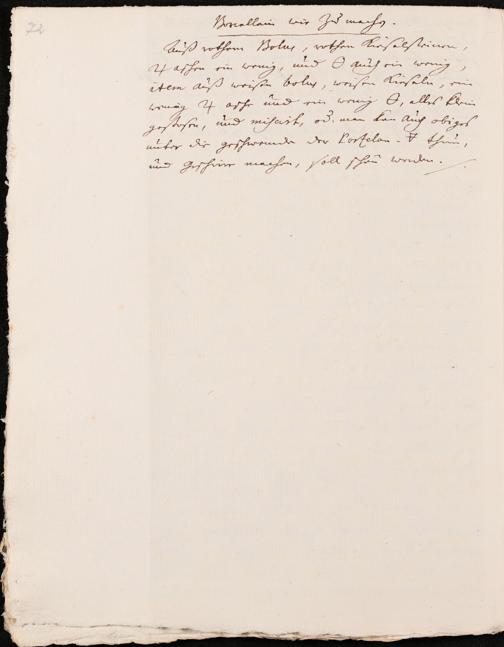 22
Borcellain wie zu machen.
Auß rothem Bolus, rothen Kieselsteinen,
♃ aschen ein wenig, und 🜔 auch ein wenig,
item auß weisen bolus, weisen Kieseln, ein
wenig ♃ asche und ein wenig 🜔, alles klein
gestosen, und mischts, od. man kan auch obiges
unter die geschwemde der Porcelan- 🜃 thun,
und geschirre machen, soll schön werden.